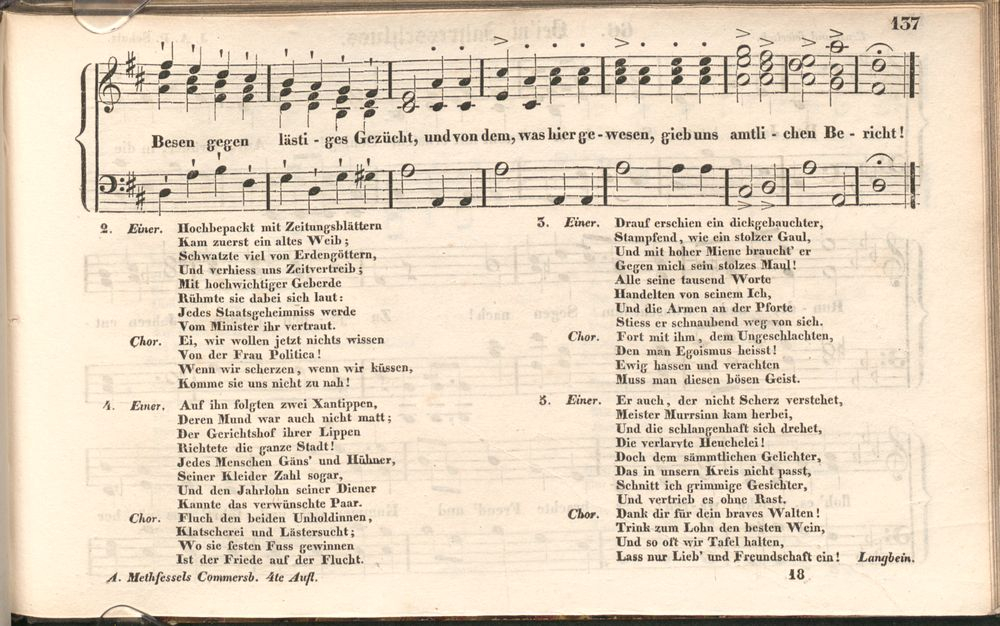 137
Besen gegen lästi - ges Gezücht, und von dem, was hier ge - wesen, gieb uns amtli - chen Be - richt!
2. Einer. Hochbepackt mit Zeitungsblättern
Kam zuerst ein altes Weib;
Schwatzte viel von Erdengöttern,
Und verhiess uns Zeitvertreib;
Mit hochwichtiger Geberde
Rühmte sie dabei sich laut:
Jedes Staatsgeheimniss werde
Vom Minister ihr vertraut.
Chor. Ei, wir wollen jetzt nichts wissen
Von der Frau Politica!
Wenn wir scherzen, wenn wir küssen,
Komme sie uns nicht zu nah!
4. Einer. Auf ihn folgten zwei Xantippen,
Deren Mund war auch nicht matt;
Der Gerichtshof ihrer Lippen
Richtete die ganze Stadt!
Jedes Menschen Gäns' und Hühner,
Seiner Kleider Zahl sogar,
Und den Jahrlohn seiner Diener
Kannte das verwünschte Paar.
Chor. Fluch den beiden Unholdinnen,
Klatscherei und Lästersucht;
Wo sie festen Fuss gewinnen
Ist der Friede auf der Flucht.
3. Einer. Drauf erschien ein dickgebauchter,
Stampfend, wie ein stolzer Gaul,
Und mit hoher Miene braucht' er
Gegen mich sein stolzes Maul!
Alle seine tausend Worte
Handelten von seinem Ich,
Und die Armen an der Pforte
Stiess er schnaubend weg von sich.
Chor. Fort mit ihm, dem Ungeschlachten,
Den man Egoismus heisst!
Ewig hassen und verachten
Muss man diesen bösen Geist.
5. Einer. Er auch, der nicht Scherz verstehet,
Meister Murrsinn kam herbei,
Und die schlangenhaft sich drehet,
Die verlarvte Heuchelei!
Doch dem sämmtlichen Gelichter,
Das in unsern Kreis nicht passt,
Schnitt ich grimmige Gesichter,
Und vertrieb es ohne Rast.
Chor. Dank dir für dein braves Walten!
Trink zum Lohn den besten Wein,
Und so oft wir Tafel halten,
Lass nur Lieb' und Freundschaft ein! Langbein.
A. Methfessels Commersb. 4te Aufl.
18